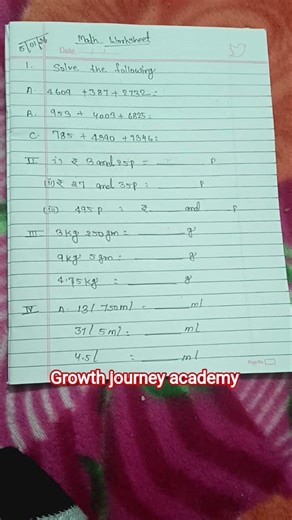 5/01/26
Math Worksheet
Date
1. Solve the following
A. 4609 + 387 + 2732 =
B. 953 + 4003 + 6825 =
C. 785 + 4890 + 9346 =
II i) ₹ 3 and 25p = ______ p
(ii) ₹ 27 and 35p = ______ p
(iii) 495 p = ₹ ______ and ______ p
III 3kg 250gm = ______ g
9kg 5gm = ______ g
4.75kg = ______ g
IV A. 13l 750ml = ______ ml
31l 5ml = ______ ml
4.5l = ______ ml
Page No.
Growth Journey academy